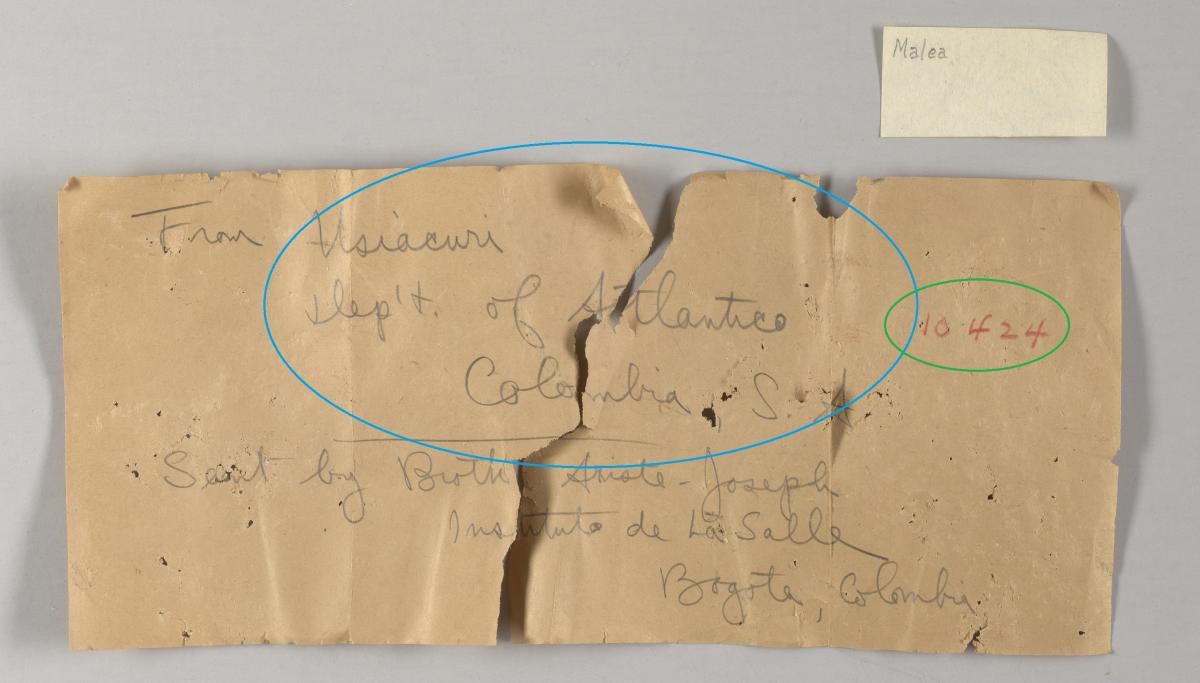 Malea
From Usiacuri
Dep't. of Atlantico
Colombia, S. A
10424
Sent by Broth Ariste-Joseph
Instituto de La Salle
Bogota, Colombia